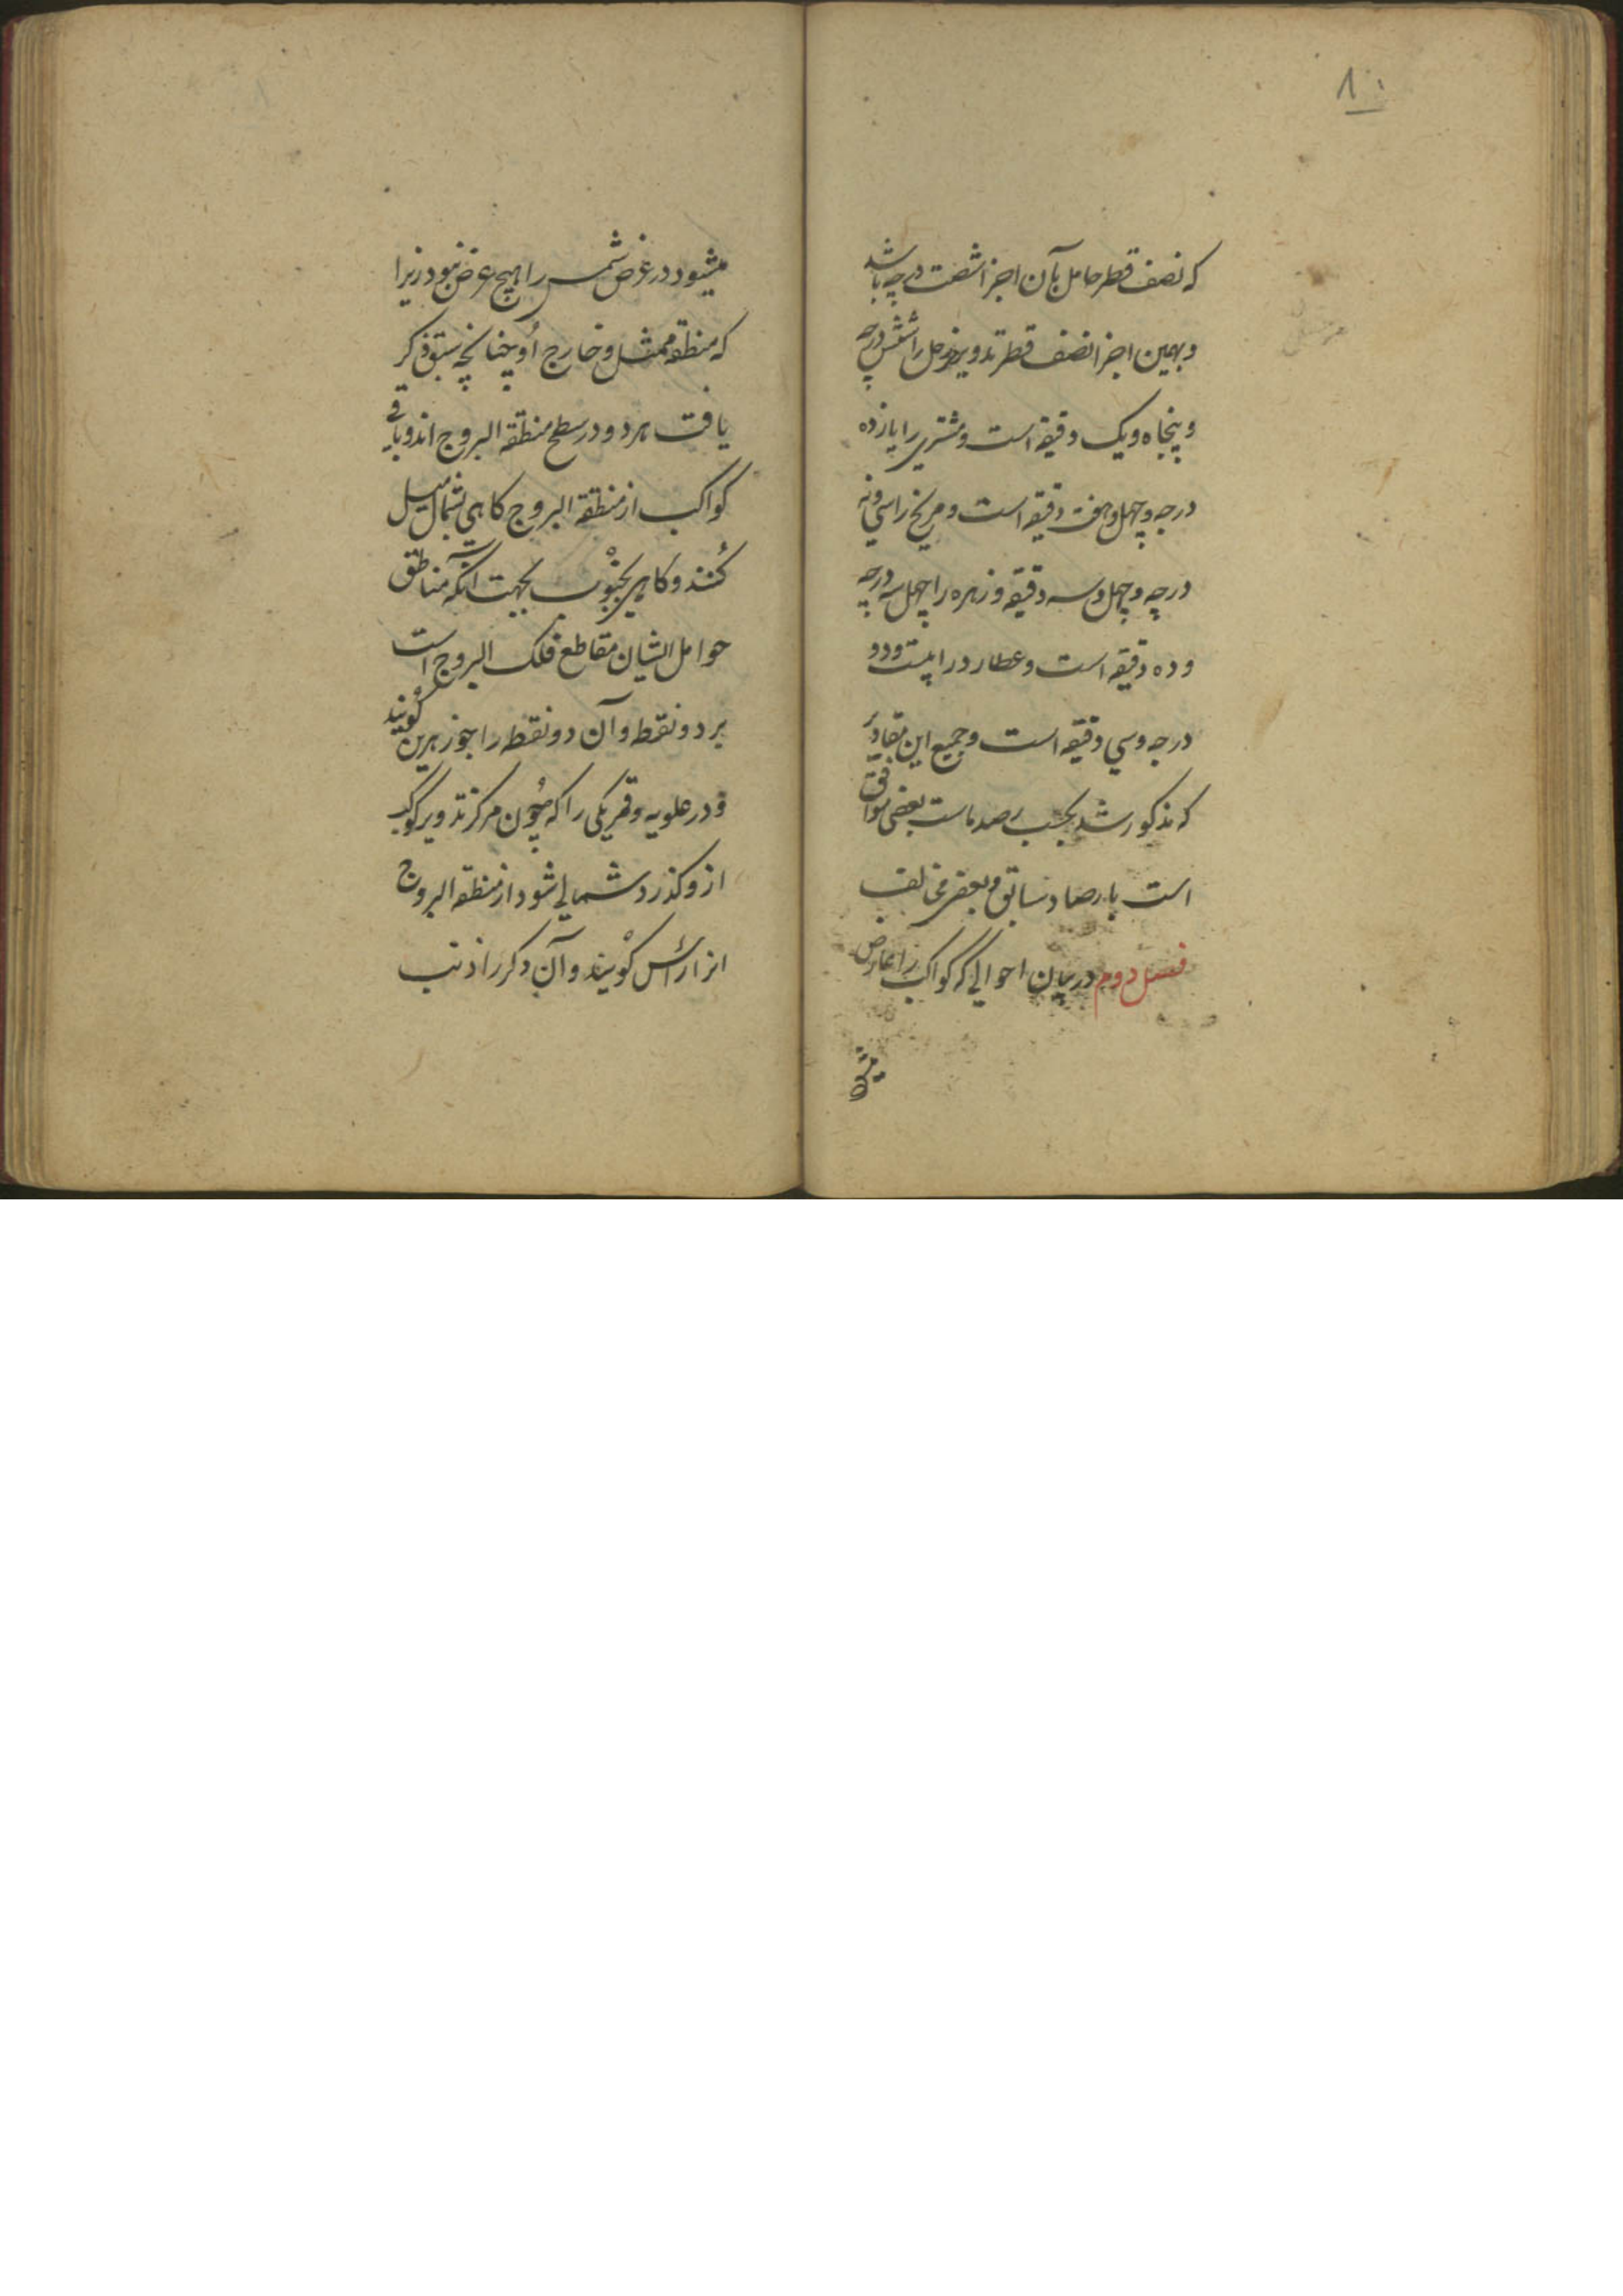 ۸۰
که نصف قطر حامل بآن اجزا شصت درجه باشد
و بهمین اجزا نصف قطر تدویر زحل را شش درجه
و پنجاه و یک دقیقه است و مشتری را یازده
درجه و چهل و هفت دقیقه است و مریخ را سی و نه
درجه و چهل و سه دقیقه و زهره را چهل سه درجه
و ده دقیقه است و عطارد را بیست و دو
درجه و سی دقیقه است و جمیع این مقادیر
که مذکور شد بحسب رصدهاست بعضی موافق
است بارصاد سابق و بعضی مخالف
فصل دوم در بیان احوالی که کواکب را عارض
میشود
میشود در عرض شمس را هیچ عرض نبود زیرا
که منطقه ممثل و خارج او چنانچه سبق ذکر
یافت هر دو در سطح منطقة البروج اند و باقی
کواکب از منطقة البروج کاهی بشمال میل
کنند و کاهی بجنوب بجهت آنکه مناطق
حوامل ایشان مقاطع فلک البروج است
بر دو نقطه و آن دو نقطه را جوزهرین کویند
و در علویه و قمر یکی را که چون مرکز تدویر کوکب
از و کذرد شمالی شود از منطقة البروج
انرا راس کویند و آن دکر را ذنب